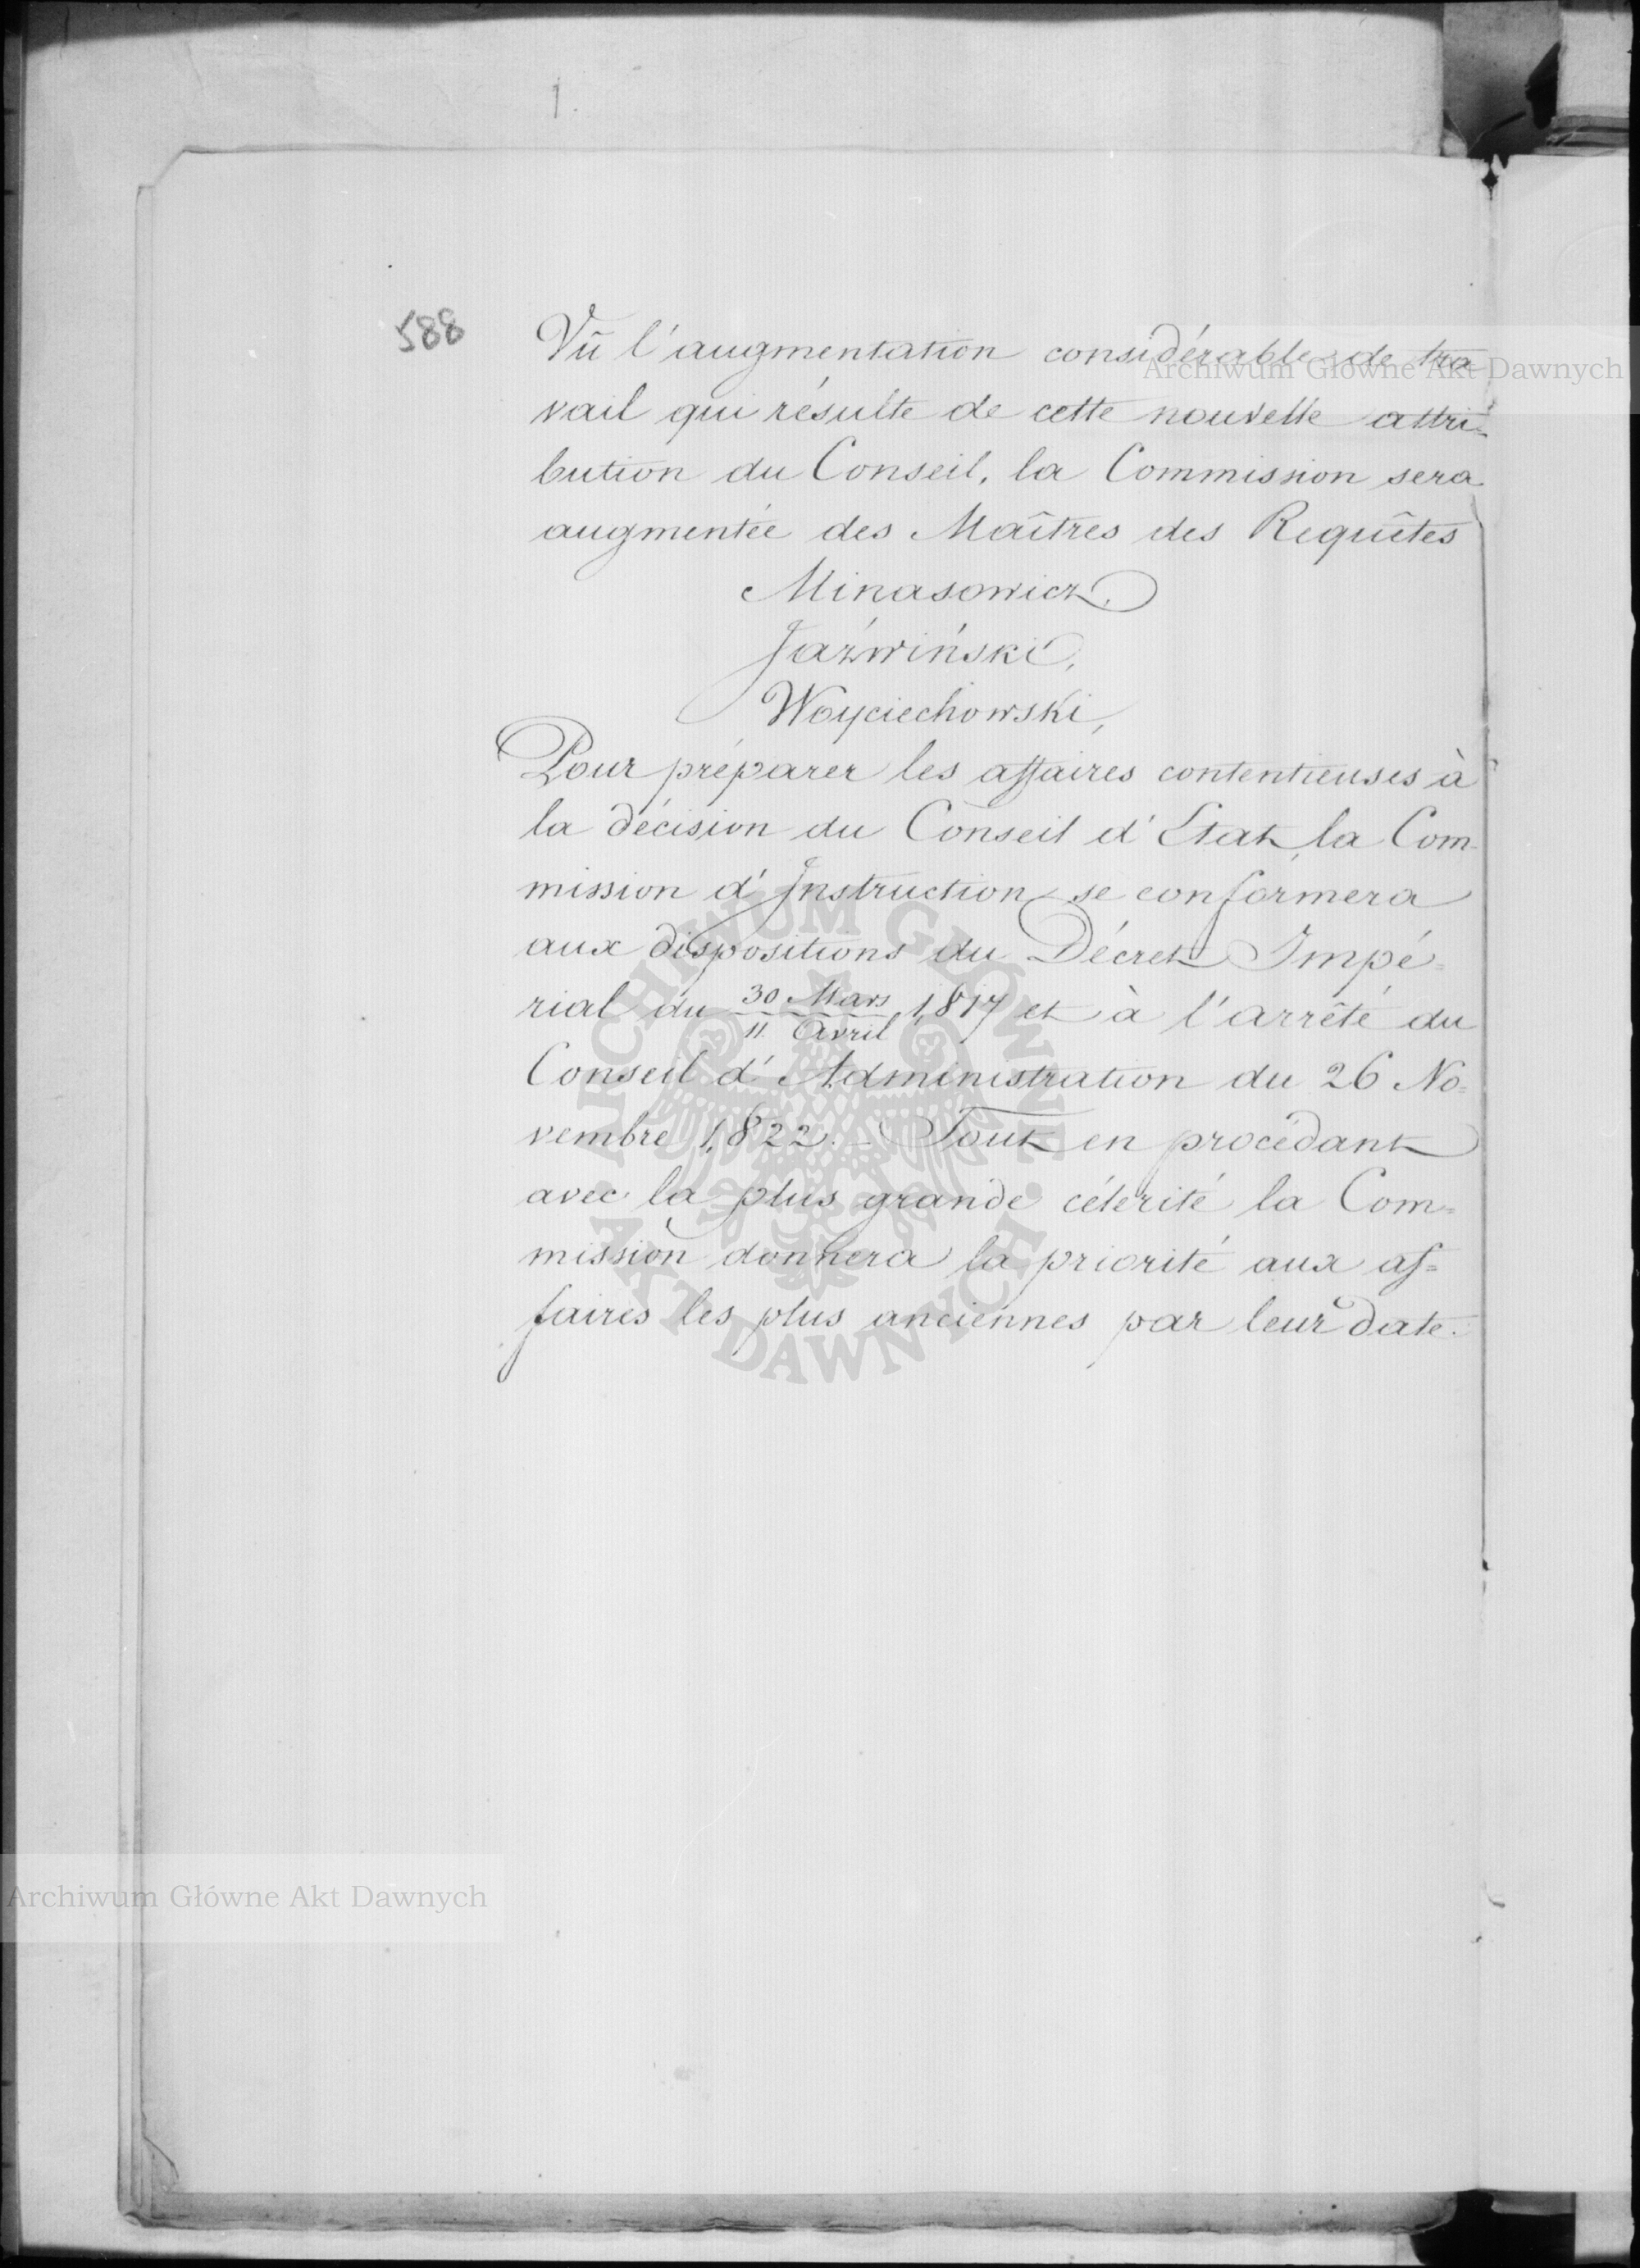 1.
588
Vû l'augmentation considérable de tra
vail qui résulte de cette nouvelle attri=
bution du Conseil, la Commission sera
augmentée des Maîtres des Requêtes
Minasowicz,
Jaźwiński,
Woyciechowski,
Pour préparer les affaires contentieuses à
la décision du Conseil d'Etat, la Com=
mission d'Instruction se conformera
aux dispositions du Décret Impé=
rial du 30 Mars / 11 Avril 1,817 et à l'arrêté du
Conseil d'Administration du 26 No=
vembre 1,822. – Tout en procédant
avec la plus grande célérité la Com=
mission donnera la priorité aux af=
faires les plus anciennes par leur date.
Archiwum Główne Akt Dawnych
ARCHIWUM GŁÓWNE · AKT DAWNYCH ·
Archiwum Główne Akt Dawnych